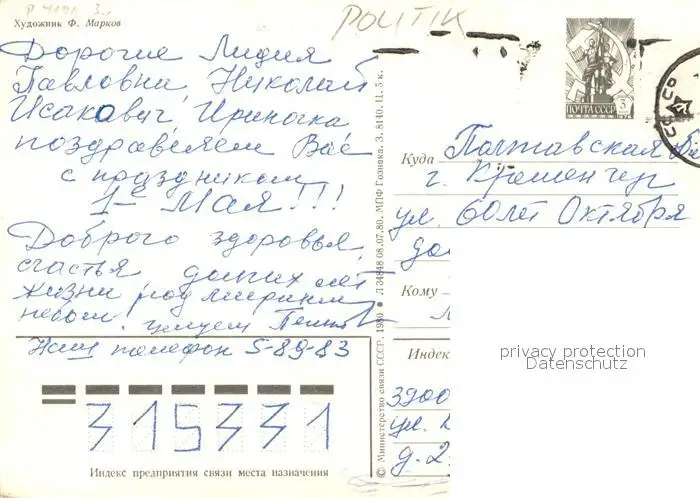 Р 4190 3.-
POLITIK
Художник Ф. Марков
Дорогие Лидия
Павловна, Николай
Исакович, Ириночка
поздравляем Вас
с праздником
1-е Мая!!!
Доброго здоровья,
счастья, долгих лет
жизни под мирным
небом! Целуем
Наш телефон 5-89-83
315331
Индекс предприятия связи места назначения
© Министерство связи СССР. 1980 ● Л 34848 08.07.80. МПФ Гознака. З. 8140. Ц. 5 к.
ПОЧТА СССР 3
Куда Полтавская
г. Кременчуг
ул. 60 лет Октября
Кому
Индекс
privacy protection
Datenschutz
ул.